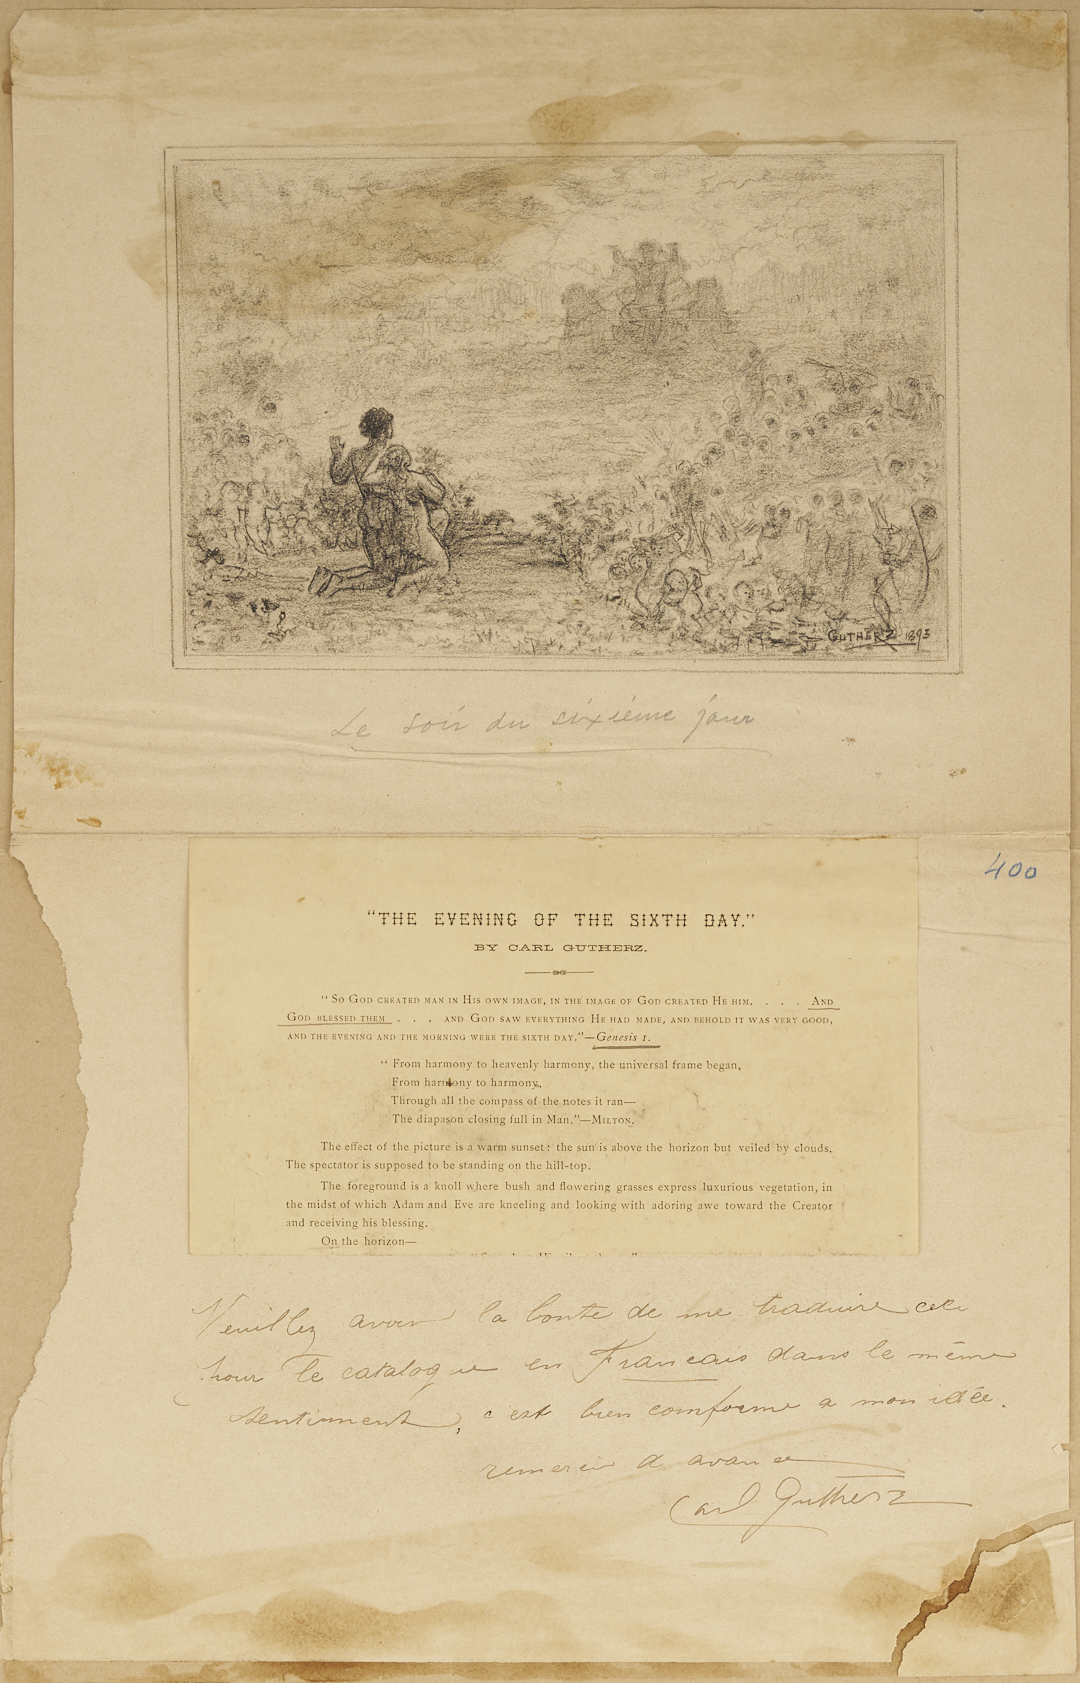 GUTHERZ 1893
Le soir du sixième jour
400
"THE EVENING OF THE SIXTH DAY."
BY CARL GUTHERZ.
"SO GOD CREATED MAN IN HIS OWN IMAGE, IN THE IMAGE OF GOD CREATED HE HIM. . . . AND
GOD BLESSED THEM . . . AND GOD SAW EVERYTHING HE HAD MADE, AND BEHOLD IT WAS VERY GOOD,
AND THE EVENING AND THE MORNING WERE THE SIXTH DAY."—Genesis 1.
"From harmony to heavenly harmony, the universal frame began,
From harmony to harmony,
Through all the compass of the notes it ran—
The diapason closing full in Man."—MILTON.
The effect of the picture is a warm sunset: the sun is above the horizon but veiled by clouds.
The spectator is supposed to be standing on the hill-top.
The foreground is a knoll where bush and flowering grasses express luxurious vegetation, in
the midst of which Adam and Eve are kneeling and looking with adoring awe toward the Creator
and receiving his blessing.
On the horizon—
Veuillez avoir la bonte de me traduire cela
pour le catalogue en Francais dans le même
sentiment, c'est bien comforme a mon idée.
remercie d avance
Carl Gutherz